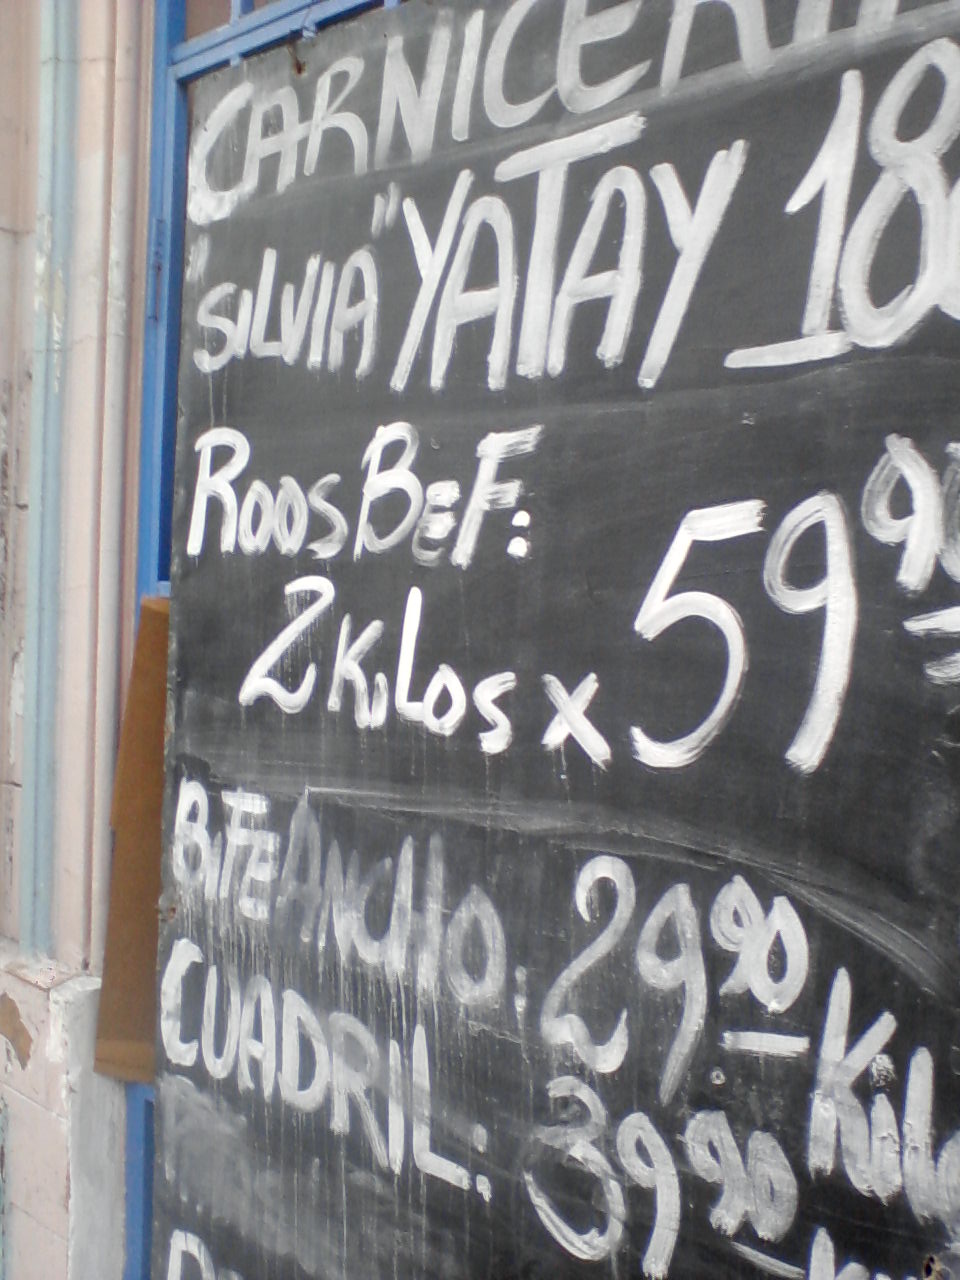 CARNICERIA
"SILVIA" YATAY 18
ROOSBEF:
2 KiLos x 59 90
BiFE ANCHO: 29 90 Kilo
CUADRIL: 39 90